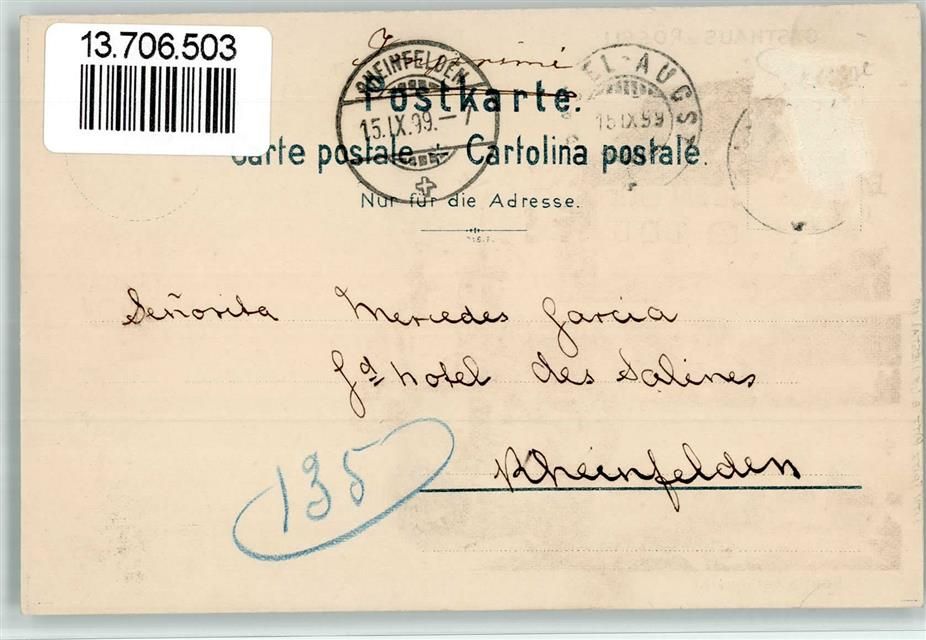 13.706.503
Imprimé
Postkarte.
Carte postale. Cartolina postale.
Nur für die Adresse.
RHEINFELDEN
15.IX.99.-7
EL-AUGST
15.IX.99
Señorita Mercedes Garcia
Gd hotel des Salines
Rheinfelden
135